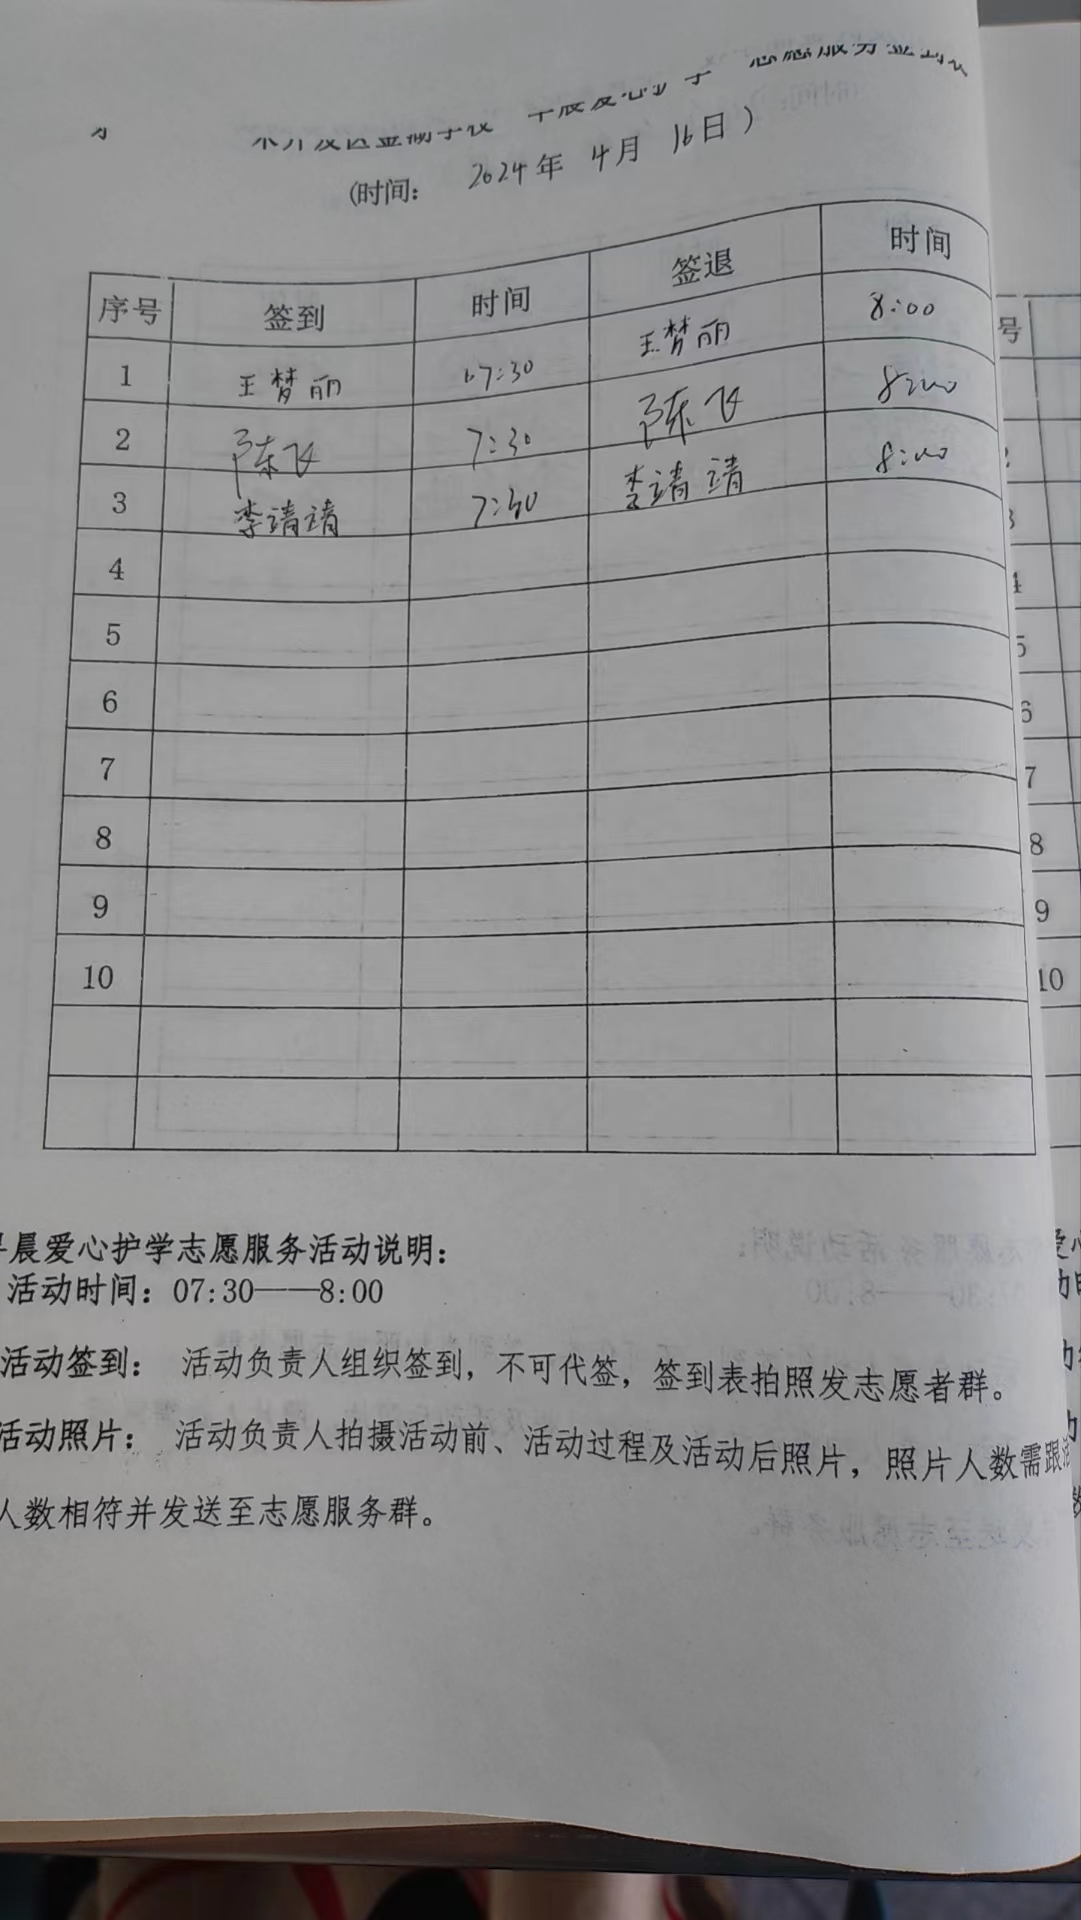 (时间: 2024年 4月 16日)
序号 签到 时间 签退 时间
1 王梦丽 07:30 王梦丽 8:00
2 陈飞 7:30 陈飞 8:00
3 李靖靖 7:30 李靖靖 8:00
4
5
6
7
8
9
10
晨爱心护学志愿服务活动说明:
活动时间: 07:30——8:00
活动签到: 活动负责人组织签到, 不可代签, 签到表拍照发志愿者群。
活动照片: 活动负责人拍摄活动前、活动过程及活动后照片, 照片人数需跟
人数相符并发送至志愿服务群。
号
5
6
7
8
9
10